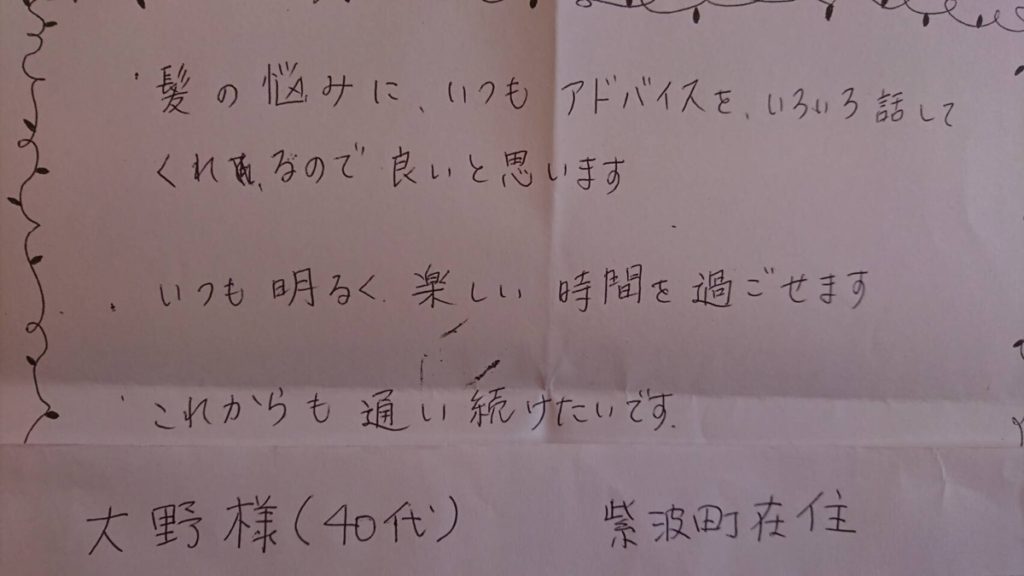 ・髪の悩みに、いつも アドバイスを、いろいろ話して
くれるので良いと思います
・いつも明るく 楽しい 時間を過ごせます
・これからも通い続けたいです.
大野様(40代) 紫波町在住